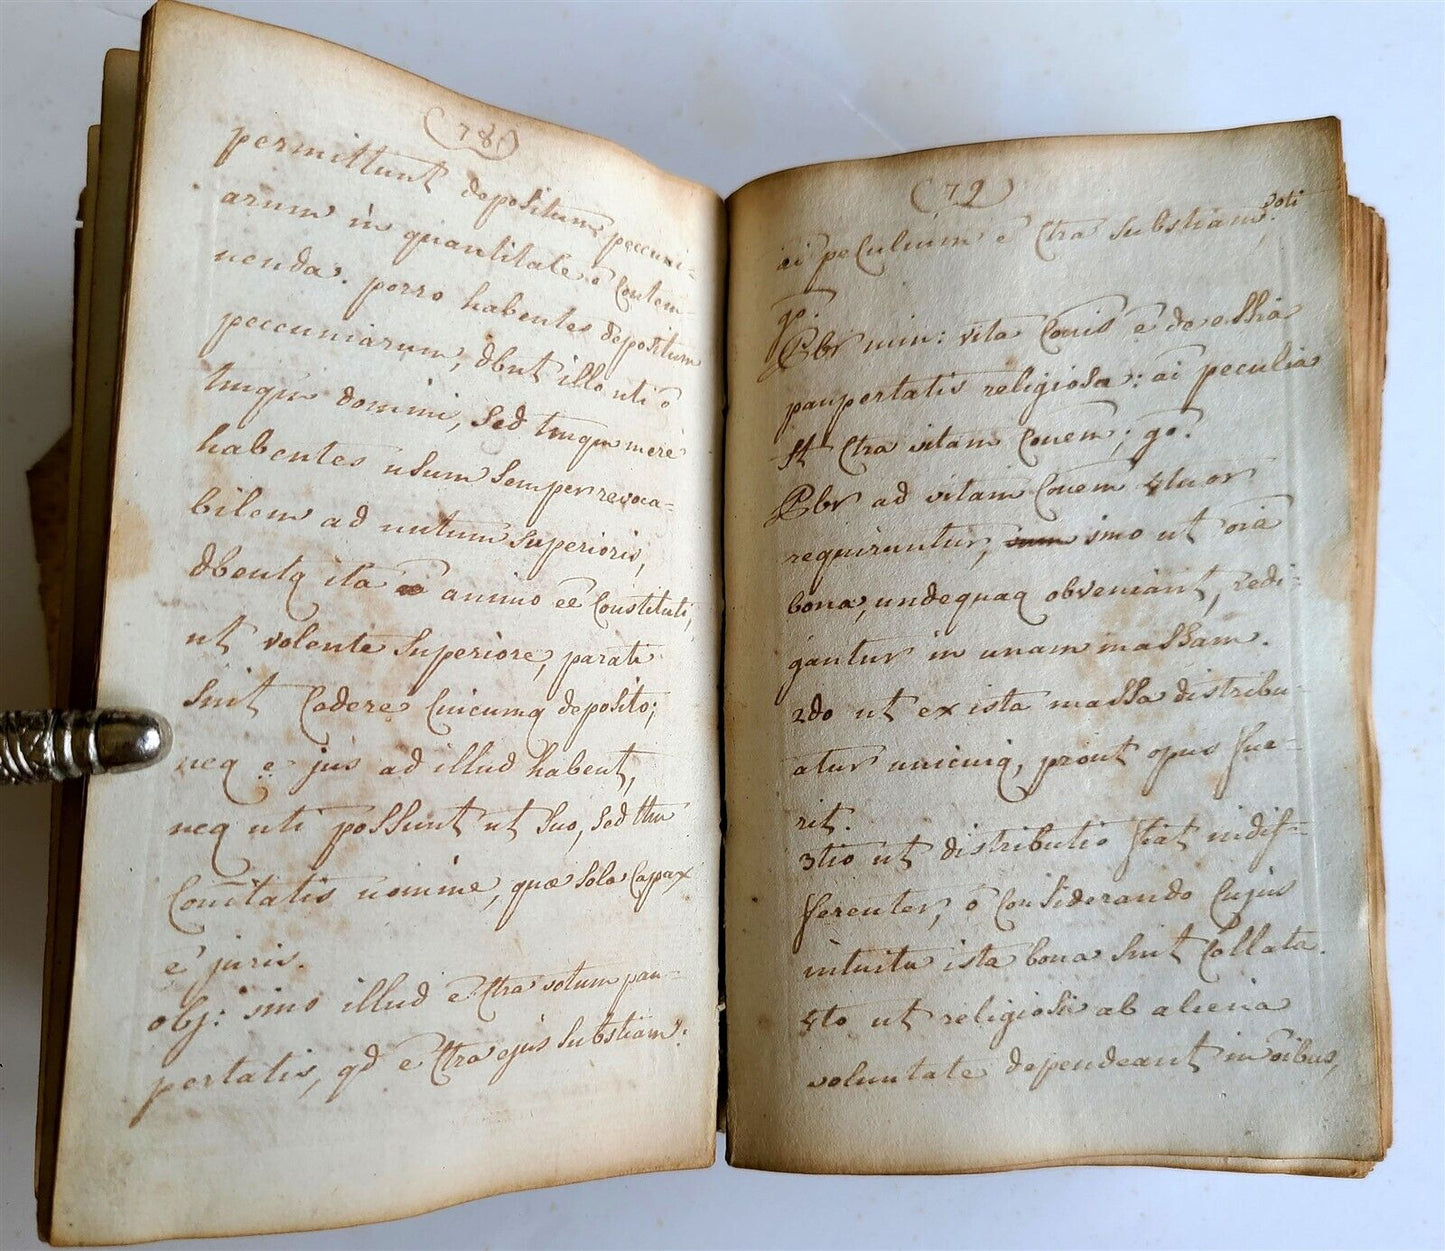 (78)
permittunt depositum peccuni=
arum in quantitate õ contem=
nenda. porro habentes depositum
peccuniarum, dbnt illo uti õ
tmqm domini, sed tmqm mere
habentes usum semper revoca=
bilem ad nutum superioris,
dbentq ita animo eê constituti,
ut volente superiore, parati
sint cadere cuicumq deposito;
neq e jus ad illud habent,
neq uti possunt ut suo, sed tm
Comitatis nomine, quæ sola capax
ê juris.
obj: imo illud ê ctra votum pau=
pertatis, qd ê ctra ejus substiam:
(79)
ai peculium ê ctra substiam voti
go.
Pbr min: vita cõuis ê de essia
paupertatis religiosa: ai peculia
st ctra vitam cõuem; go.
Pbr ad vitam cõuem 4tuor
requiruntur, imo ut oia
bona, undequaq obveniant, redi=
gantur in unam massam.
2do ut ex ista massa distribu=
atur unicuiq, prout opus fue=
rit.
3tio ut distributio fiat indif=
ferenter, õ considerando cujus
intuitu ista bona sint collata.
4to ut religiosi ab aliena
voluntate dependeant in oibus,